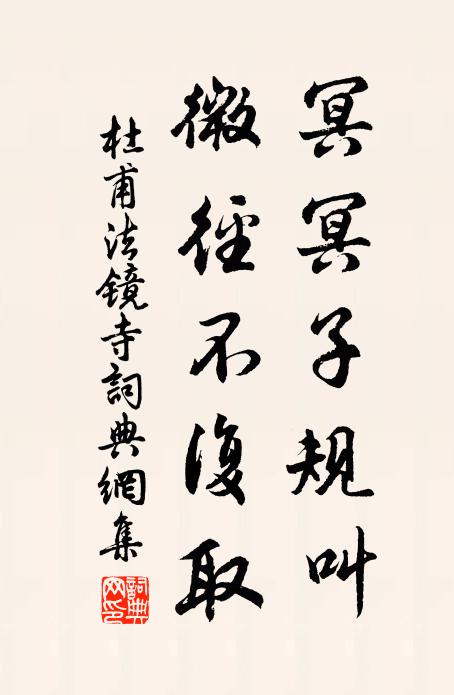 冥冥子規叫
微徑不復取
杜甫法鏡寺詞典網集
詞典網印